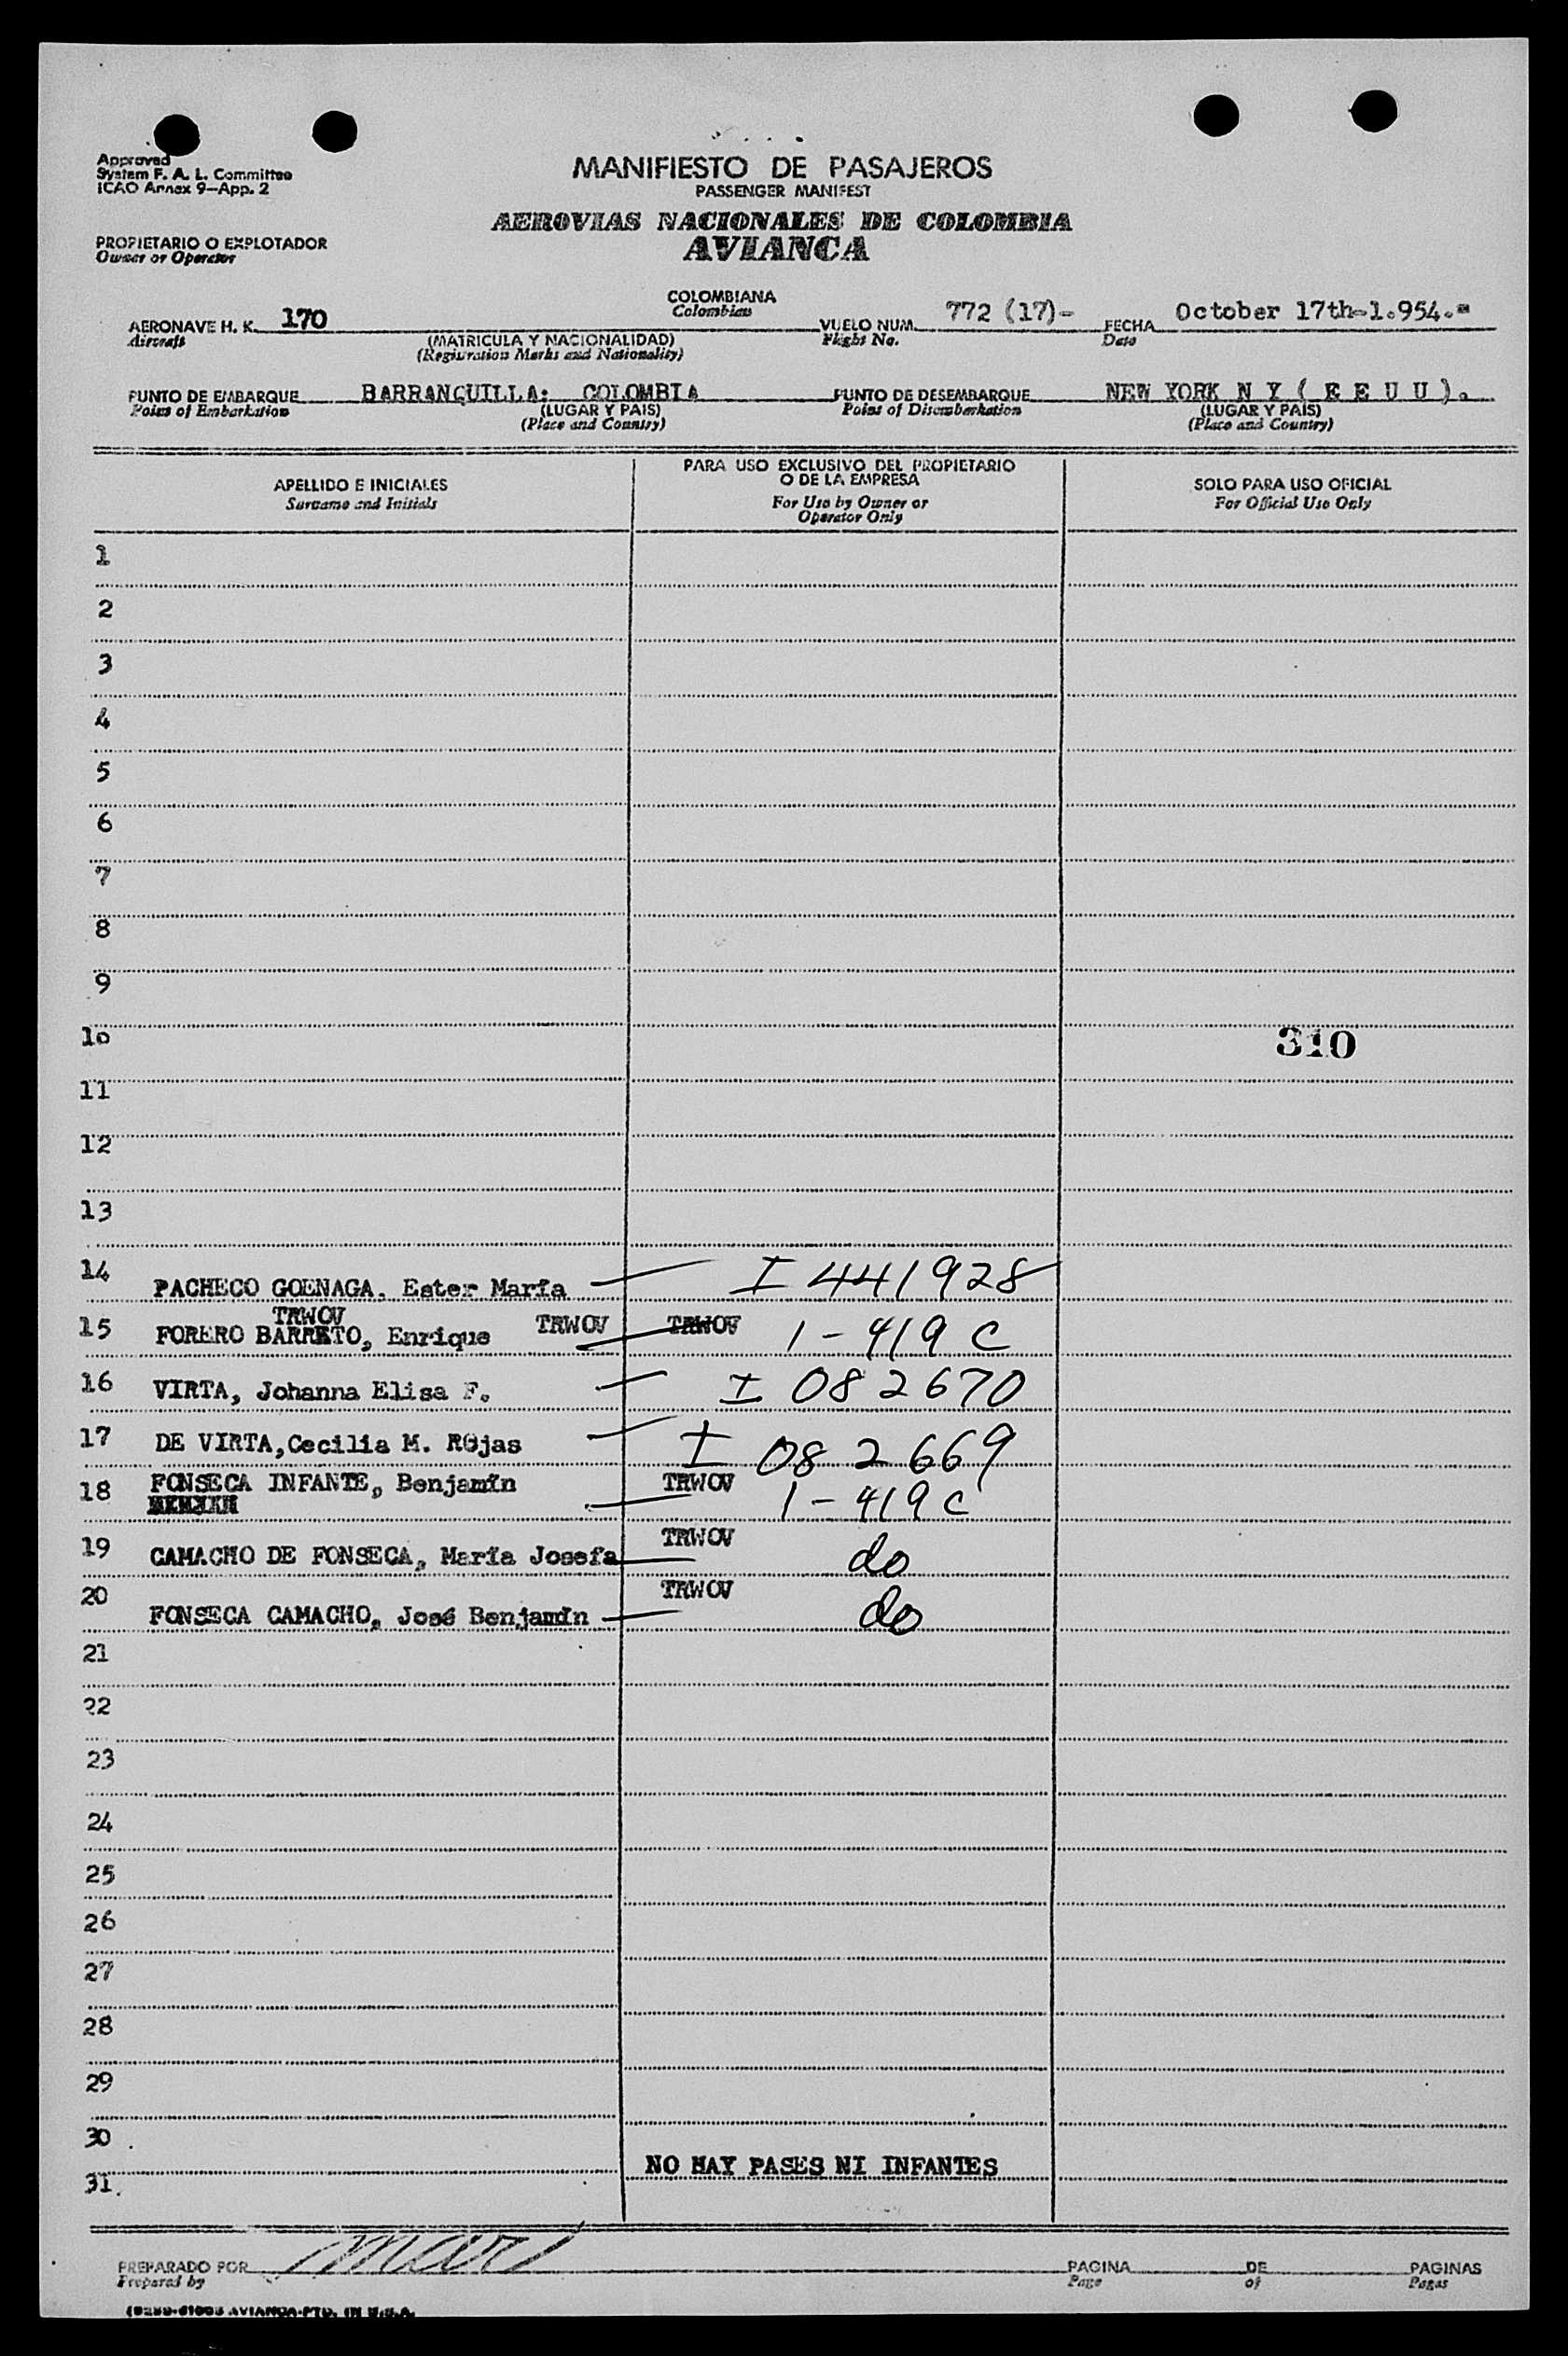 Approved
System F. A. L. Committee
ICAO Annex 9—App. 2
MANIFIESTO DE PASAJEROS
PASSENGER MANIFEST
AEROVIAS NACIONALES DE COLOMBIA
AVIANCA
PROPIETARIO O EXPLOTADOR
Owner or Operator
COLOMBIANA
Colombian
AERONAVE H. K. 170 VUELO NUM. 772 (17)- FECHA October 17th-1.954.-
Aircraft (MATRICULA Y NACIONALIDAD) Flight No. Date
(Registration Marks and Nationality)
PUNTO DE EMBARQUE BARRANQUILLA: COLOMBIA PUNTO DE DESEMBARQUE NEW YORK N Y ( E E U U ).
Point of Embarkation (LUGAR Y PAIS) Point of Disembarkation (LUGAR Y PAÍS)
(Place and Country) (Place and Country)
APELLIDO E INICIALES PARA USO EXCLUSIVO DEL PROPIETARIO O DE LA EMPRESA SOLO PARA USO OFICIAL
Surname and Initials For Use by Owner or Operator Only For Official Use Only
1
2
3
4
5
6
7
8
9
10 310
11
12
13
14 PACHECO GOENAGA, Ester María I 441928
TRWOV
15 FORERO BARRETO, Enrique TRWOV TRWOV 1-419 C
16 VIRTA, Johanna Elisa F. I 082670
17 DE VIRTA,Cecilia M. ROjas I 082669
18 FONSECA INFANTE, Benjamín TRWOV 1-419 C
19 CAMACHO DE FONSECA, María Josefa TRWOV do
20 FONSECA CAMACHO, José Benjamín TRWOV do
21
22
23
24
25
26
27
28
29
30
NO HAY PASES NI INFANTES
31
PREPARADO POR PAGINA DE PAGINAS
Prepared by Page of Pages